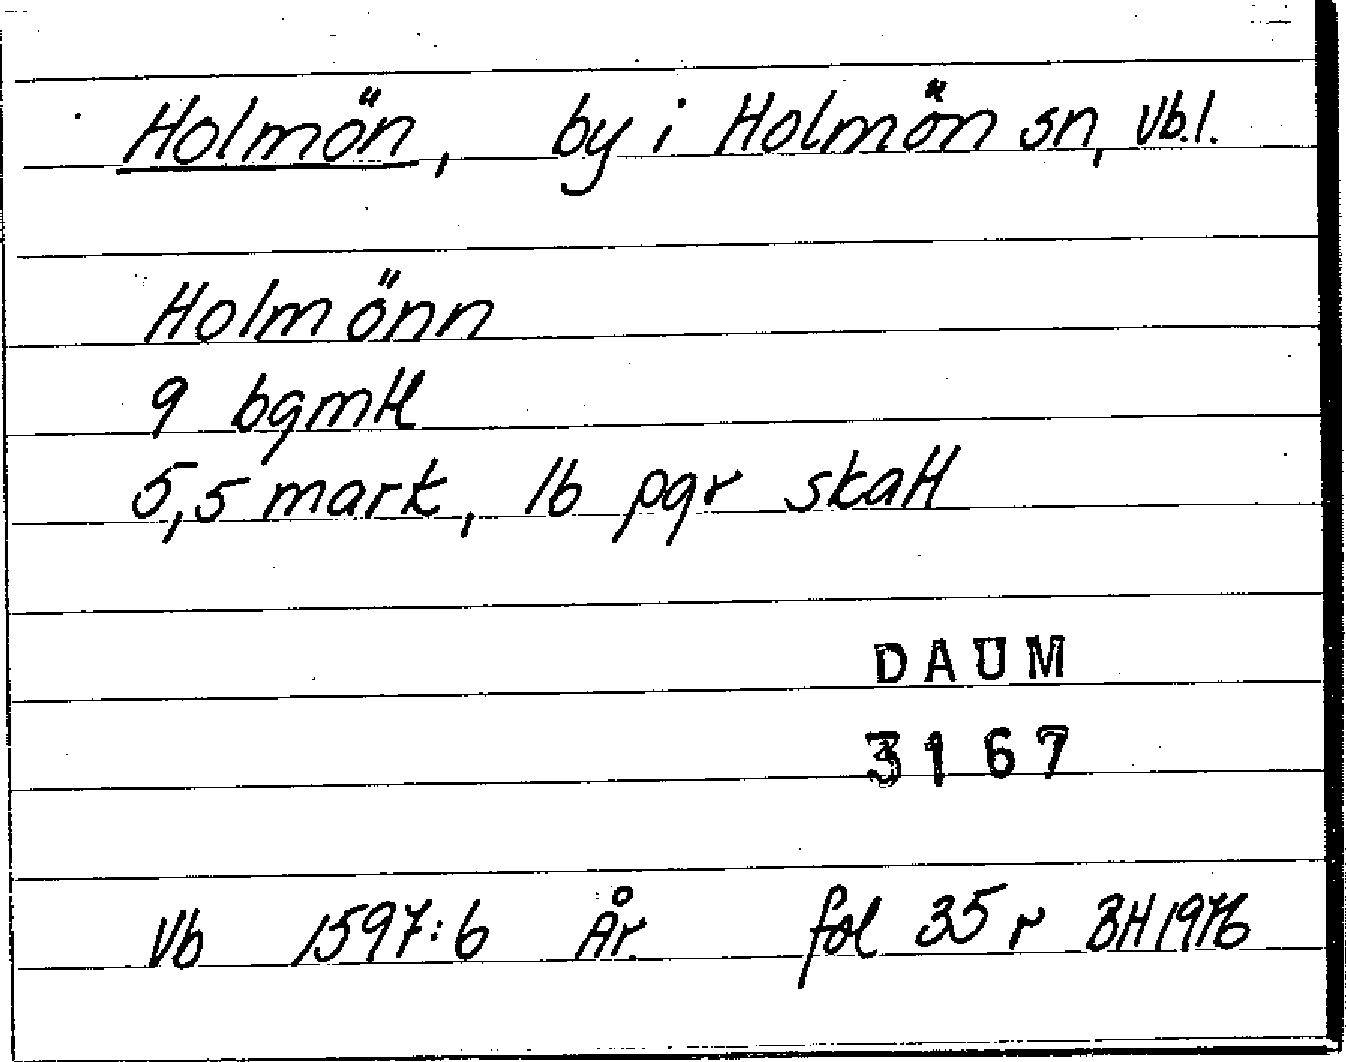 Holmön, by i Holmön sn, Vb.l.
Holmönn
9 bgmtl
5,5 mark, 16 pgr skatt
DAUM
3167
Vb 1597:6 År fol 35 r BH 1976